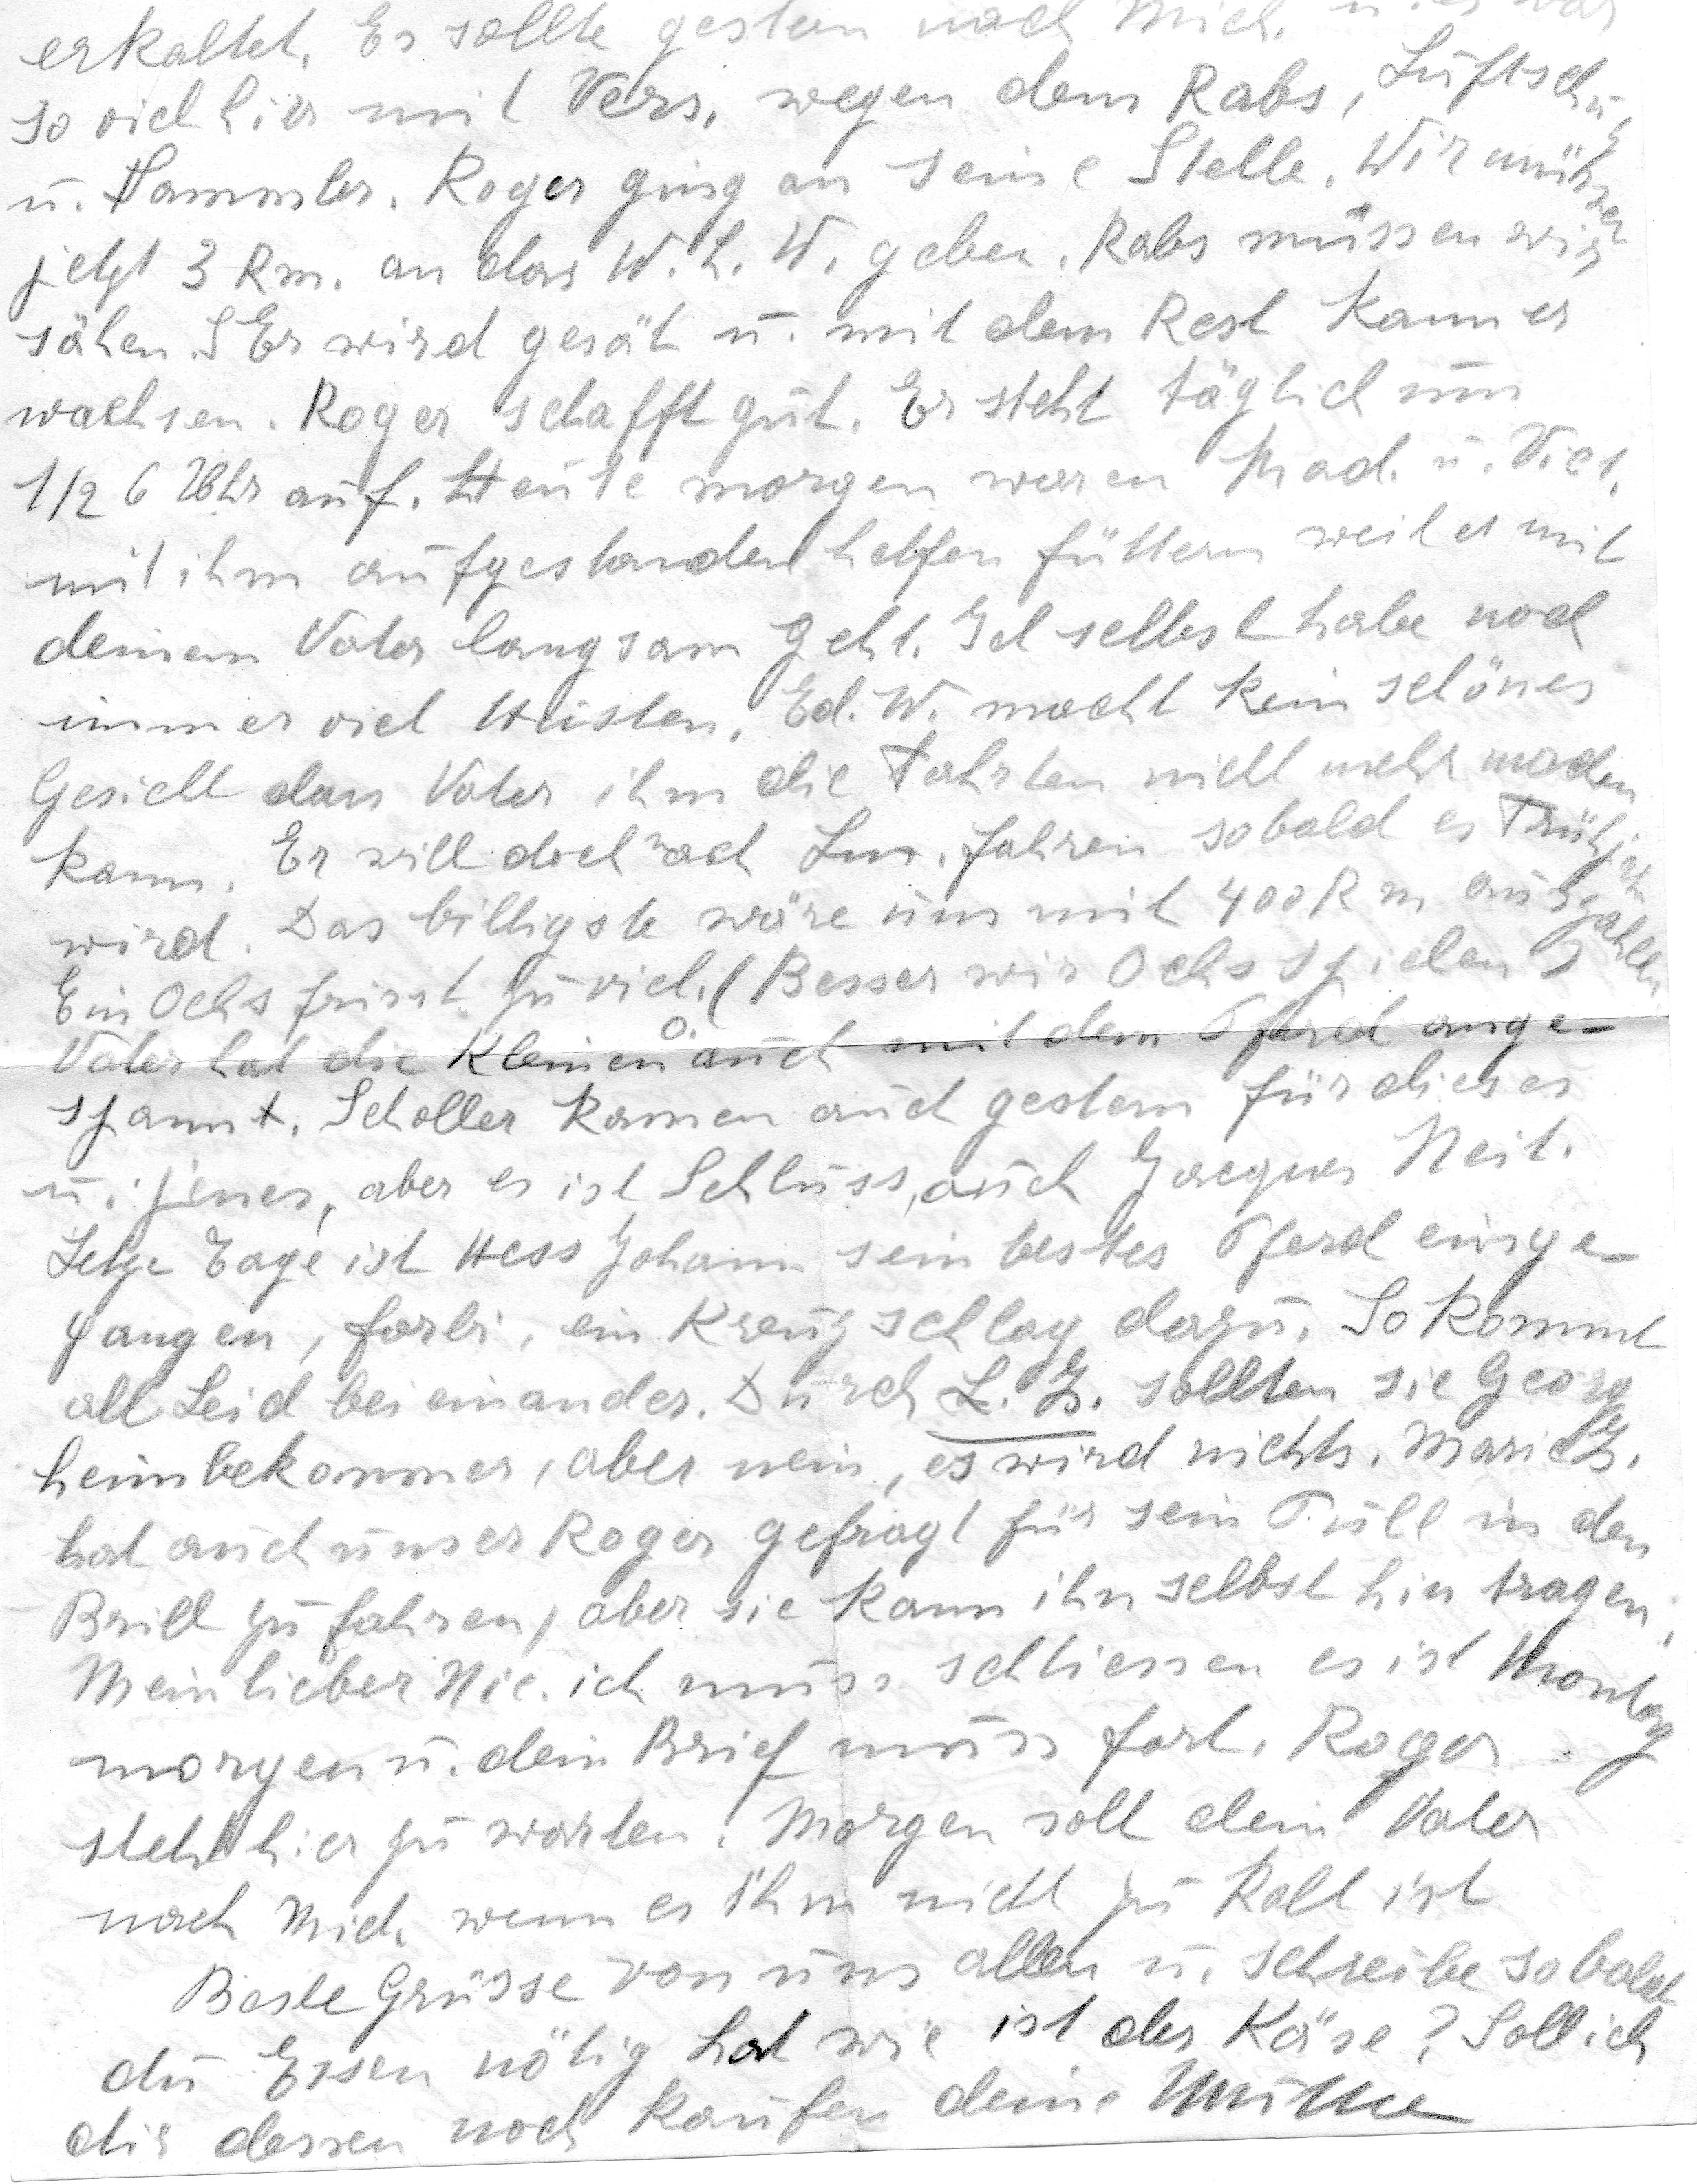 erkaltet. Er sollte gestern nach Mich. u. es war
so viel hier mit Vers. wegen dem Rabs, Luftschutz
u. Sammler. Roger ging an seine Stelle. Wir müssen
jetzt 3 Rm. an das W.H.W. geben. Rabs müssen wir
sähen. Er wird gesät u. mit dem Rest kann er
wachsen. Roger schafft gut. Er steht täglich um
1/2 6 Uhr auf. Heute morgen waren Mad. u. Vict.
mit ihm aufgestanden helfen füttern weil es mit
deinem Vater langsam geht. Ich selbst habe noch
immer viel Husten. Ed. W. macht kein schönes
Gesicht dass Vater ihm die Fahrten nicht mehr machen
kann. Er will doch nach Lux. fahren sobald es Frühjahr
wird. Das billigste wäre uns mit 400 Rm auszahlen
Ein Ochs frisst zu viel. (Besser wir Ochs spielen)
Vater hat die Kleinen auch mit dem Pferd ange-
spannt. Scholler kamen auch gestern für dieses
u. jenes, aber es ist Schluss, auch Jacques Neit.
Letze Tage ist Hess Johann sein bestes Pferd einge-
gangen, farbi, ein Kreuzschlag dazu. So kommt
all Leid beieinander. Durch L. Z. sollten sie Georg
heimbekommen, aber nein, es wird nichts. Marie Z.
hat auch unser Roger gefragt für sein Püll in den
Brill zu fahren, aber sie kann ihn selbst hin tragen.
Mein lieber Nic. ich muss schliessen es ist Montag
morgen u. dein Brief muss fort. Roger
steht hier zu warten. Morgen soll dein Vater
nach Mich. wenn es ihm nicht zu kalt ist
Beste Grüsse von uns allen u. schreibe sobald
du Essen nötig hat wie ist der Käse? Soll ich
dir dessen noch kaufen deine Mutter